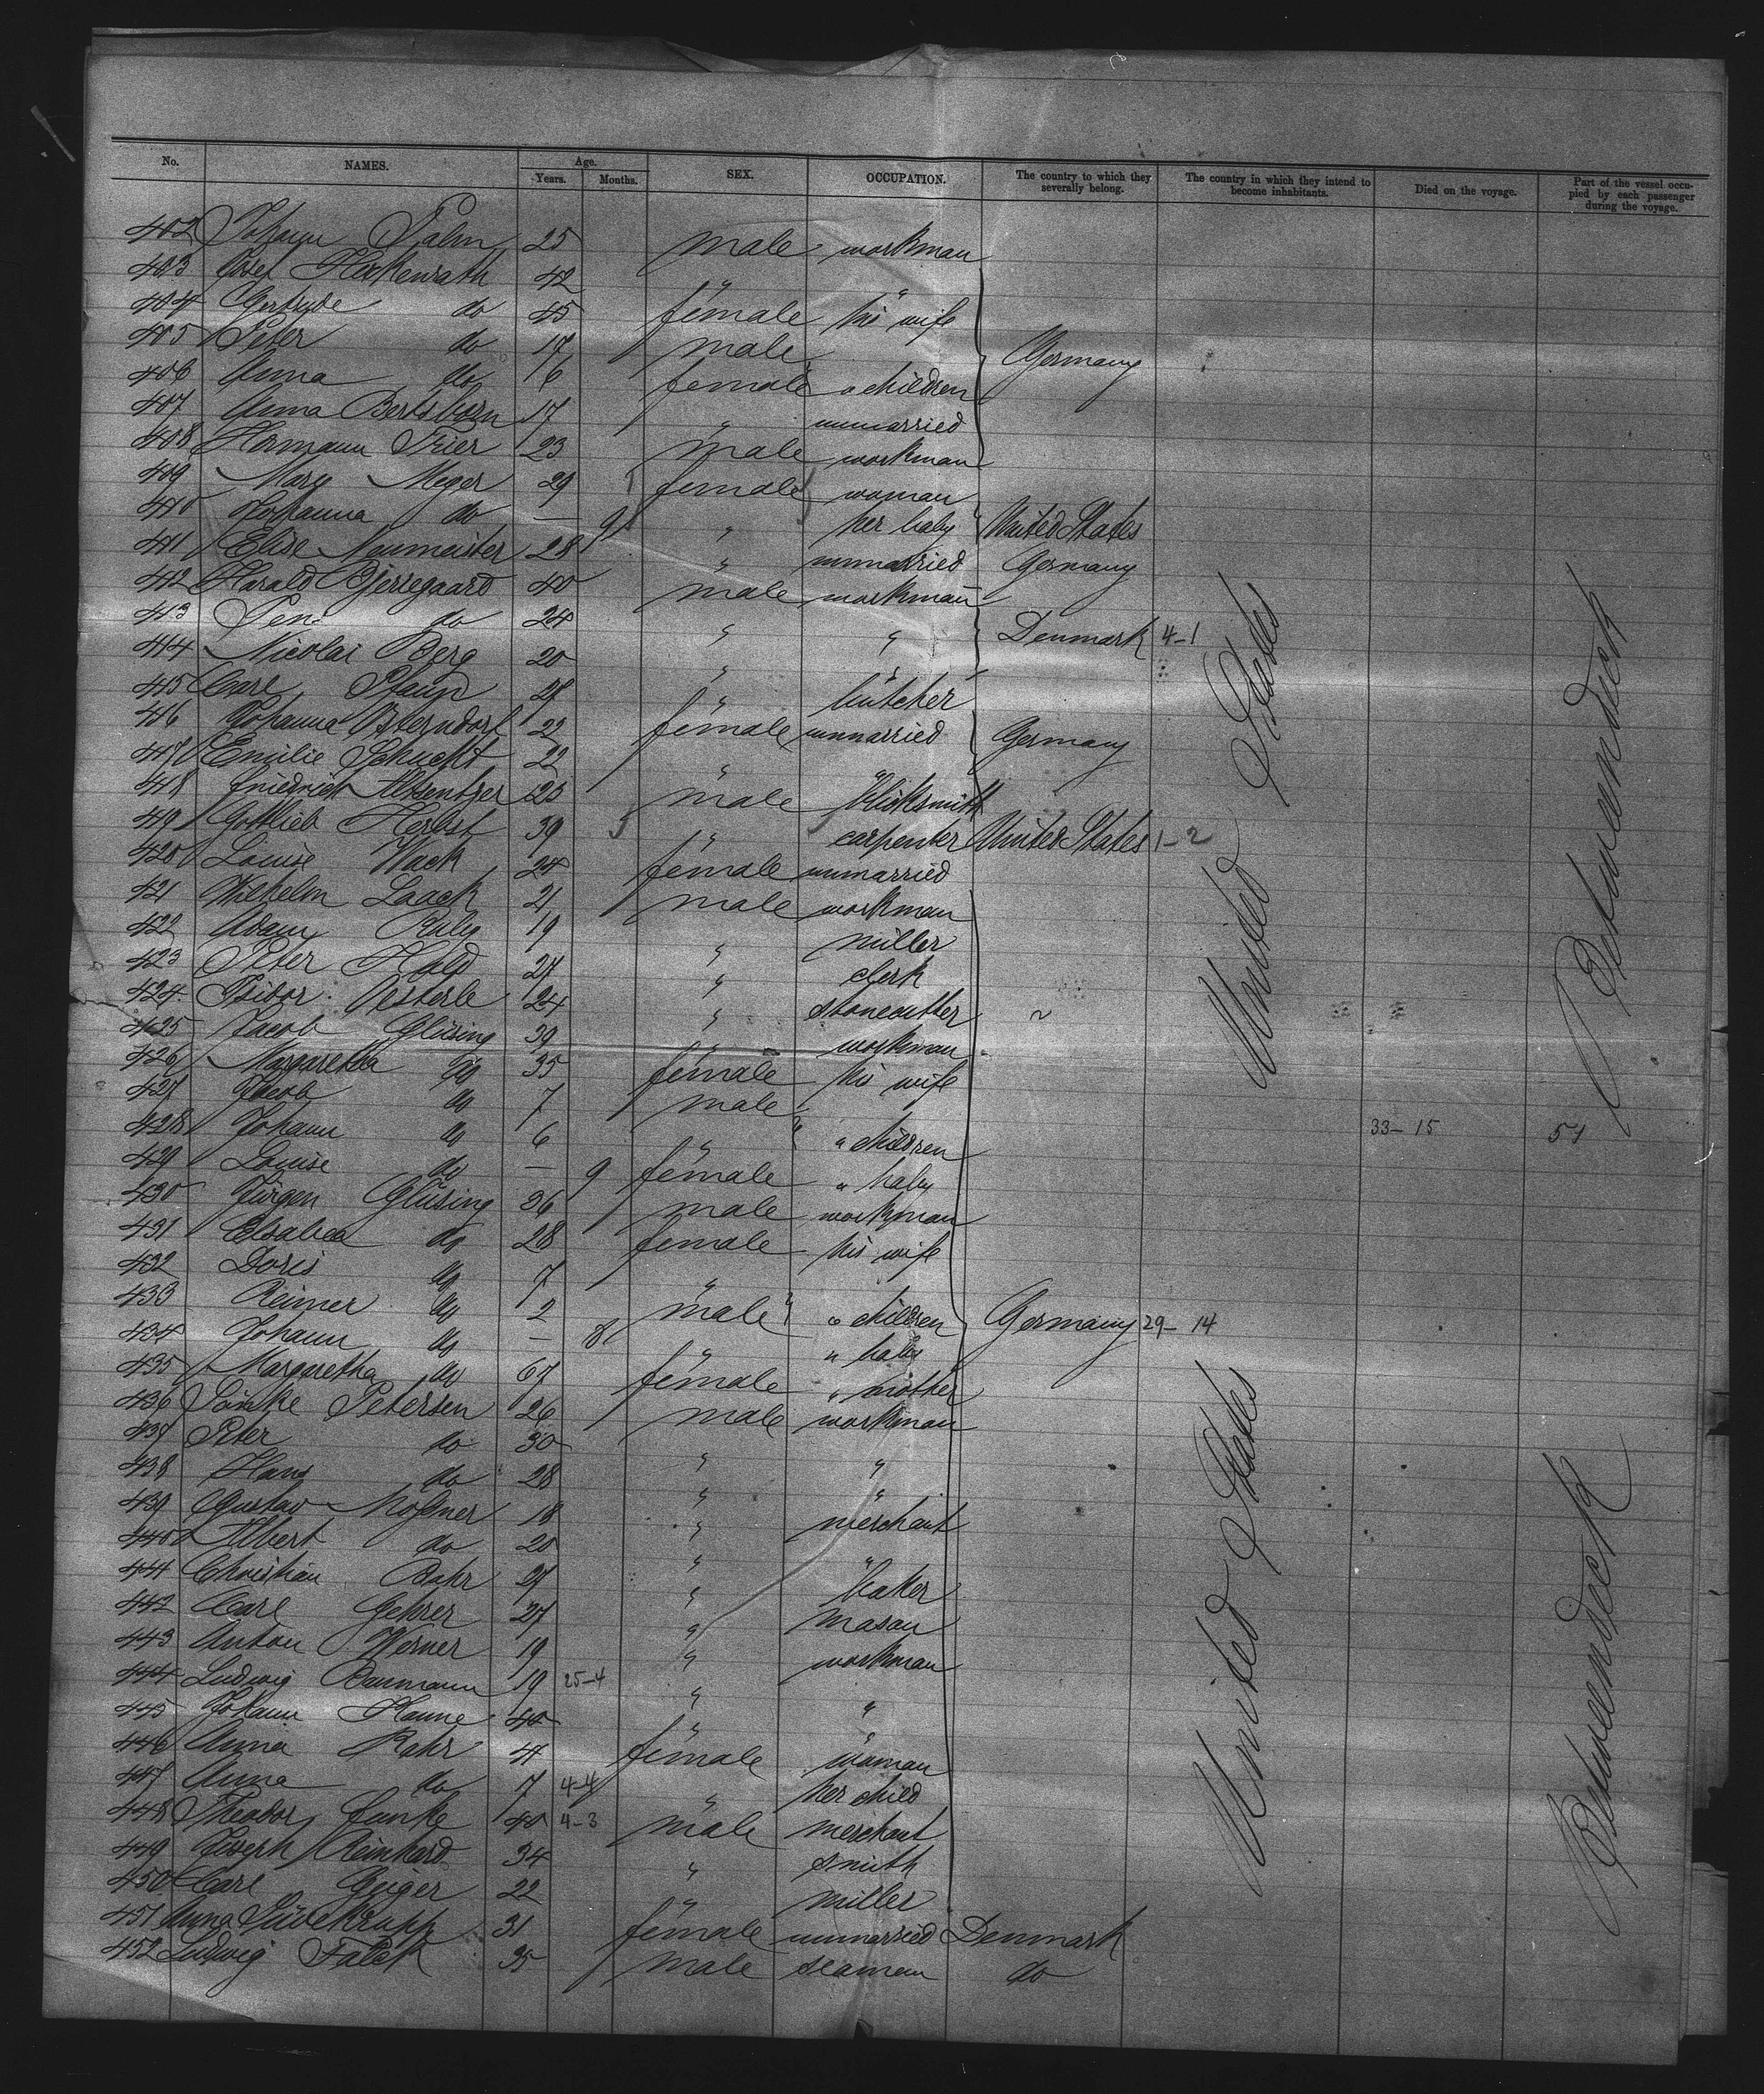 No. NAMES. Age. Years. Months. SEX. OCCUPATION. The country to which they severally belong. The country in which they intend to become inhabitants. Died on the voyage. Part of the vessel occupied by each passenger during the voyage.
402 Johann Palm 25 male workman
403 Josef Heckenrath 42 " "
404 Gertrude do 45 female his wife
405 Peter do 17 male
406 Anna do 6 female " children Germany
407 Anna Bertsborn 17 " unmarried
408 Hermann Trier 23 male workman
409 Mary Meyer 29 female woman
410 Johanna do — 9 " her baby United States
411 Elise Neumeister 28 " unmarried Germany
412 Harald Bjerregaard 40 male workman
413 Jens do 24 " " Denmark 4-1
414 Nicolai Berg 20 " "
415 Carl 28 " butcher
416 Johanna Osterndorf 22 female unmarried Germany
417 Emilie Schucht 22 " "
418 Friedrich 25 male blicksmith
419 Gottlieb Herbst 39 5 " carpenter United States 1-2
420 Louise Wack 24 female unmarried
421 Wilhelm Laack 21 male workman
422 Adam 19 " miller
423 Peter Held 27 " clerk
424 Isibor Oesterle 24 " stonecutter
425 Jacob Glüsing 39 " workman
426 Margaretha do 35 female his wife
427 Jacob do 7 male
428 Johann do 6 " " children 33-15 51
429 Louise do — 9 female " baby
430 Jürgen Glüsing 36 male workman
431 Elsabea do 28 female his wife
432 Doris do 7 "
433 Reimer do 2 male " children Germany 29-14
434 Johann do — 8 " " baby
435 Margaretha do 67 female " mother
436 Sönke Petersen 26 male workman
437 Peter do 30 " "
438 Hans do 28 " "
439 Gustav Moßner 18 " merchant
440 Albert do 20 " "
441 Christian Bahr 27 " baker
442 Carl Gehrer 27 " mason
443 Anton Werner 19 " workman
444 Ludwig Baumann 19 25-4 " "
445 Johann Hanne 40 " "
446 Anna Rahr 41 female woman
447 Anna do 7 4-4 " her child
448 Theodor Funke 40 4-3 male merchant
449 Joseph Reinhard 34 " smith
450 Carl Geiger 22 " miller
451 Anna 31 female unmarried Denmark
452 Ludwig Falck 35 male seaman do
United States
United States
Betweendeck
Betweendeck